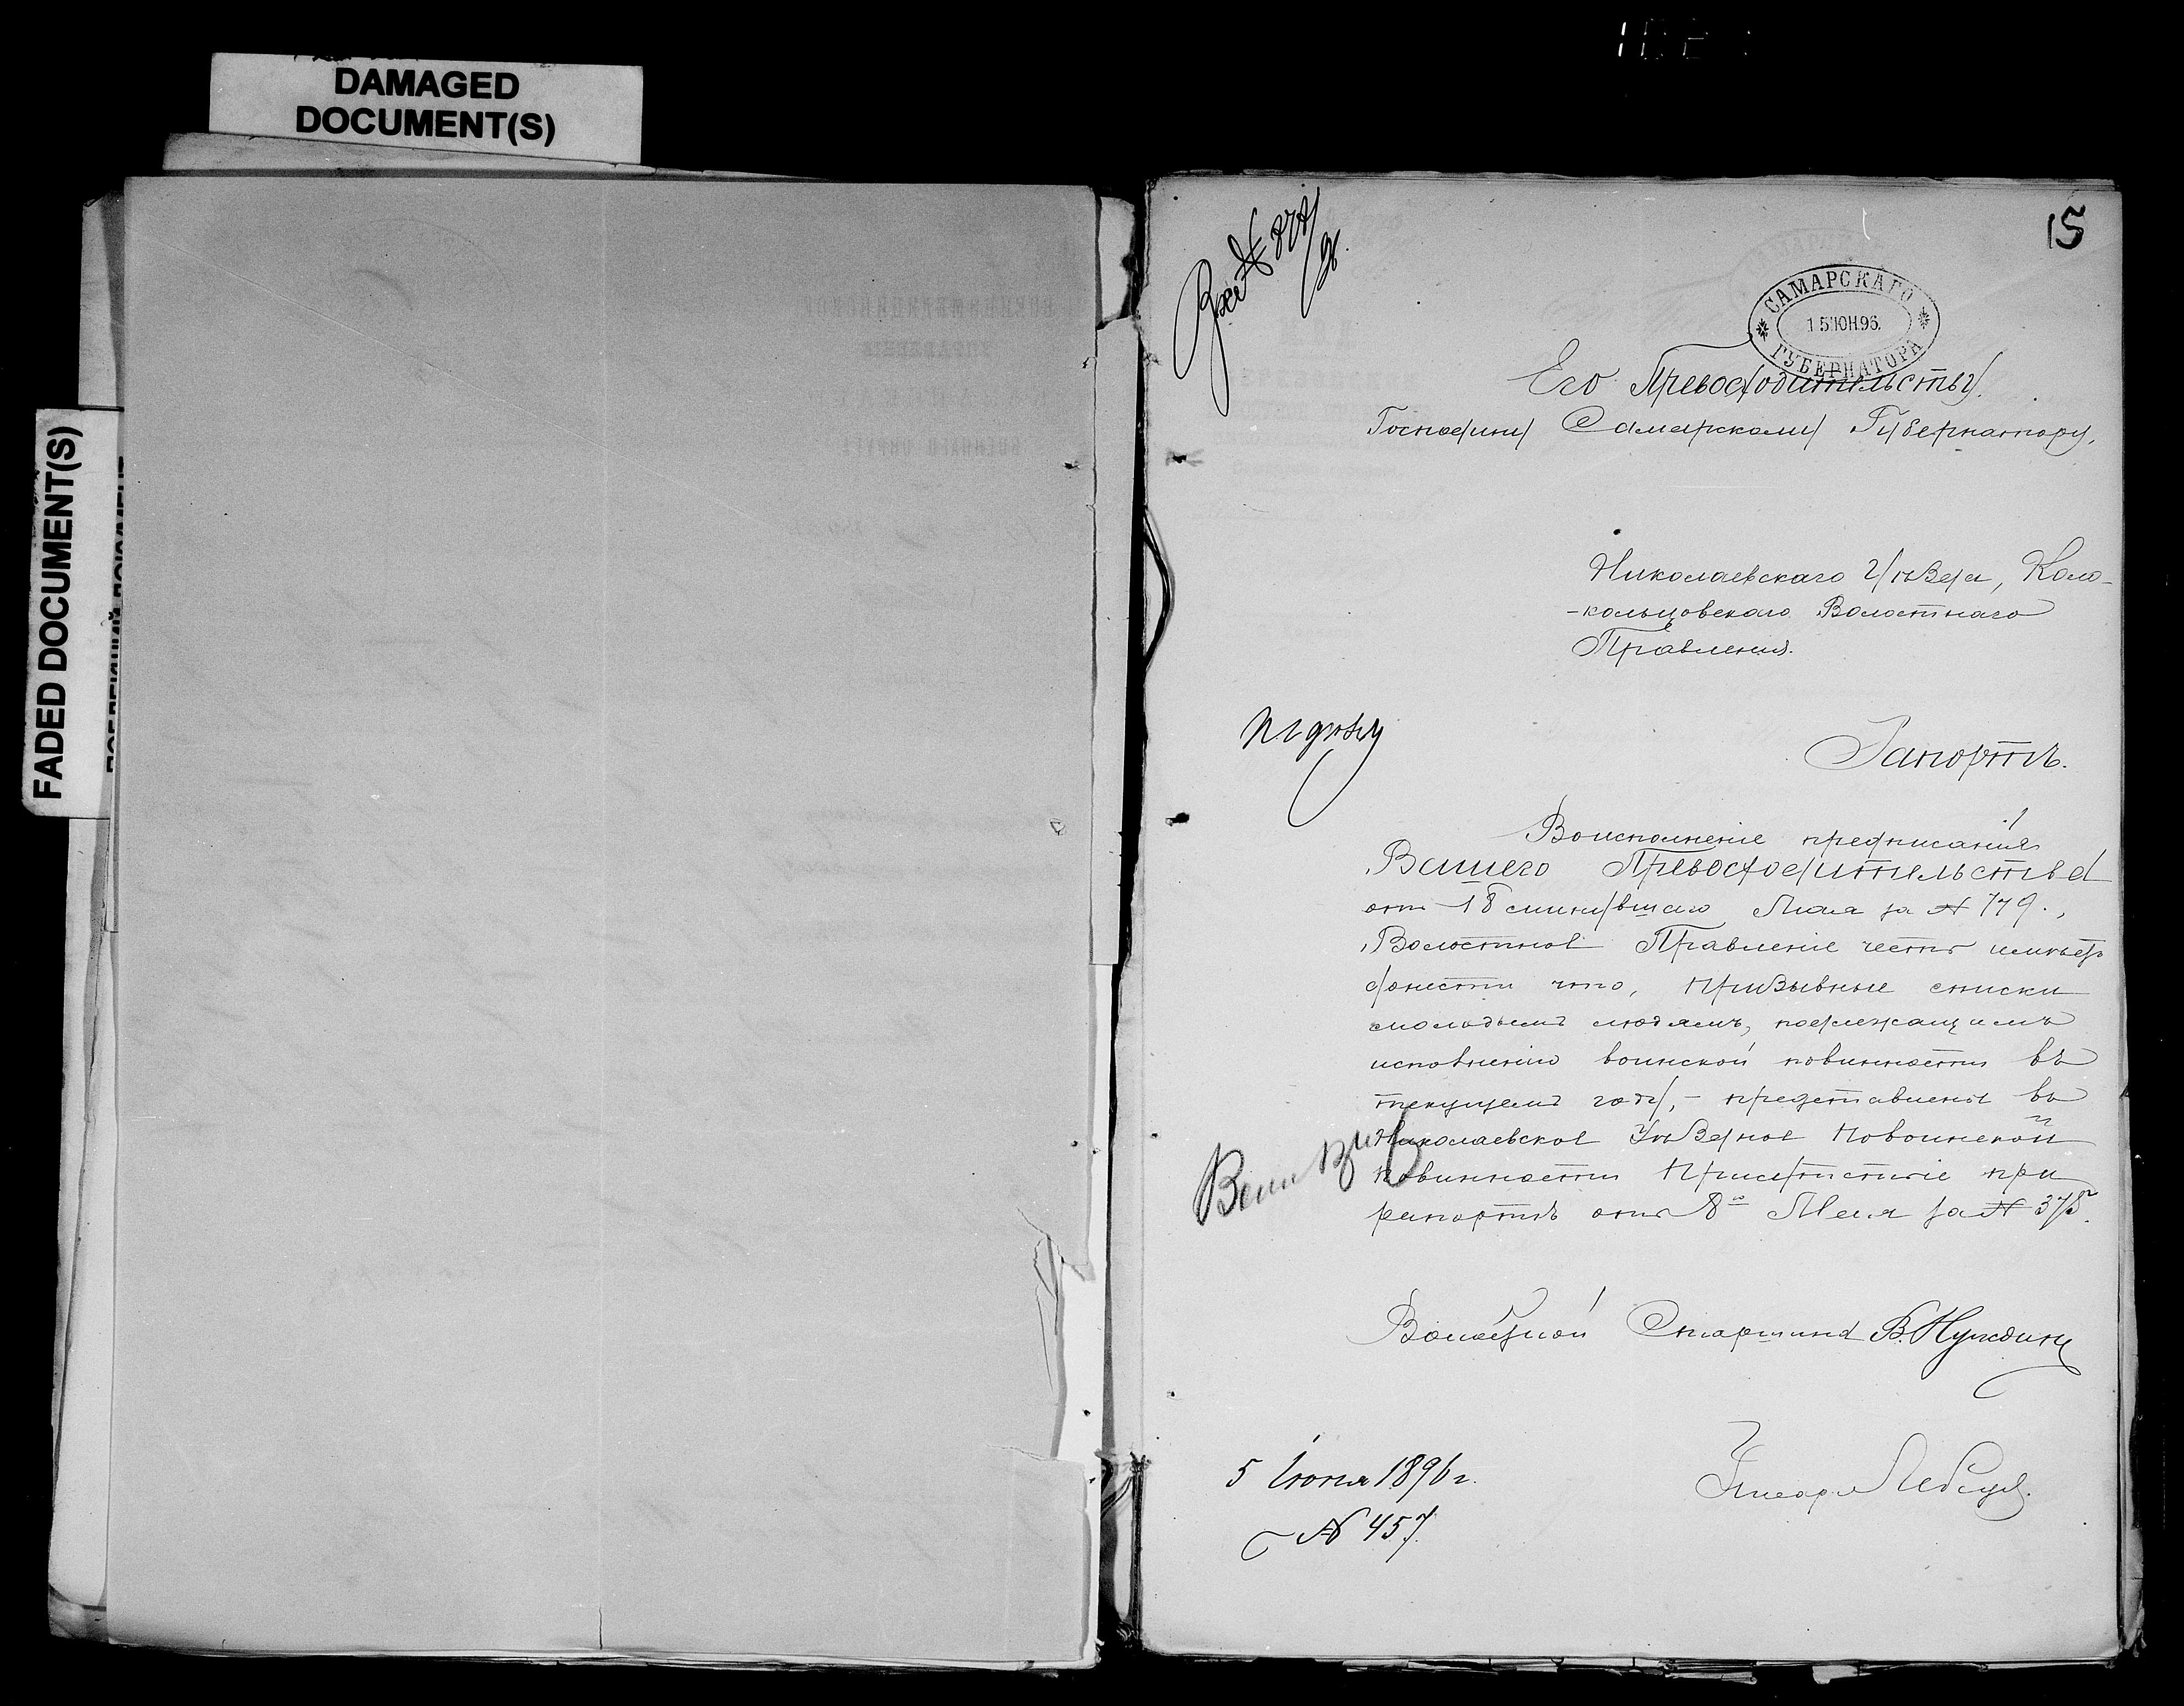 DAMAGED
DOCUMENT(S)
FADED DOCUMENT(S)
15
САМАРСКАГО
15 ІЮН. 96.
ГУБЕРНАТОРА
Его Превосходительству.
Господину Самарскому Губернатору.
Николаевскаго Уѣзда, Коло-
-кольцовскаго Волостнаго
Правленія.
Къ дѣлу
Рапортъ.
Воисполненіе предписанія
Вашего Превосходительства
отъ 18 минувшаго Мая за № 179.,
Волостное Правленіе честь имѣетъ
донести что, призывные списки
молодымъ людямъ, подлежащимъ
исполненію воинской повинности въ
текущемъ году,- представлены въ
Николаевское Уѣздное Повоинской
повинности Присутствіе при
рапортѣ отъ 8го Мая за № 375.
Волостной Старшина В. Нуждинъ
5 Іюня 1896 г.
№ 457.
Писарь